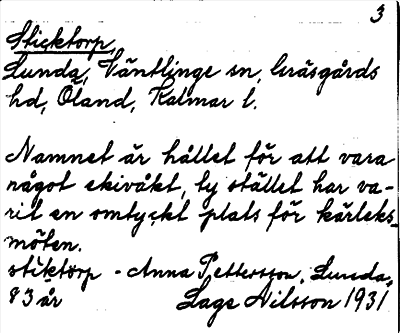 3
Sticktorp,
Lunda, Väntlinge sn, Gräsgårds
hd, Öland, Kalmar l.
Namnet är hållet för att vara
något ekivåkt, ty stället har va-
rit en omtyckt plats för kärleks-
möten.
stiktòrp - Anna Pettersson, Lunda,
83 år Lage Nilsson 1931